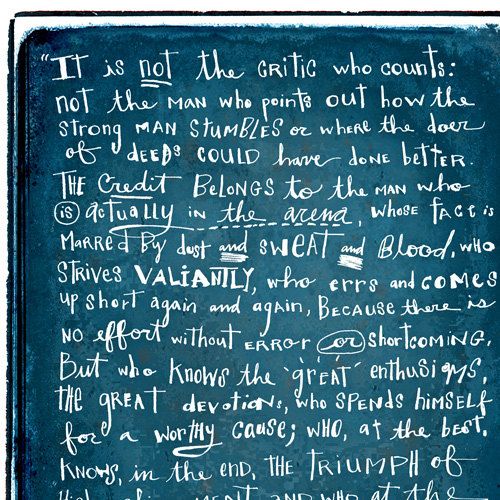 "It is not the critic who counts:
not the man who points out how the
strong man stumbles or where the doer
of deeds could have done better.
The credit belongs to the man who
is actually in the arena, whose face is
marred by dust and sweat and blood, who
strives valiantly, who errs and comes
up short again and again, because there is
no effort without error or shortcoming,
But who knows the 'great' enthusiasms,
the great devotions, who spends himself
for a worthy cause; who, at the best,
knows, in the end, the triumph of